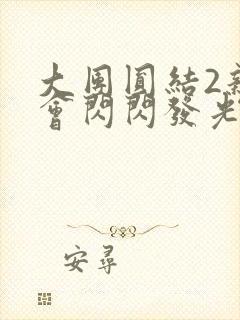 大團圓結2
會閃閃發光
安尋